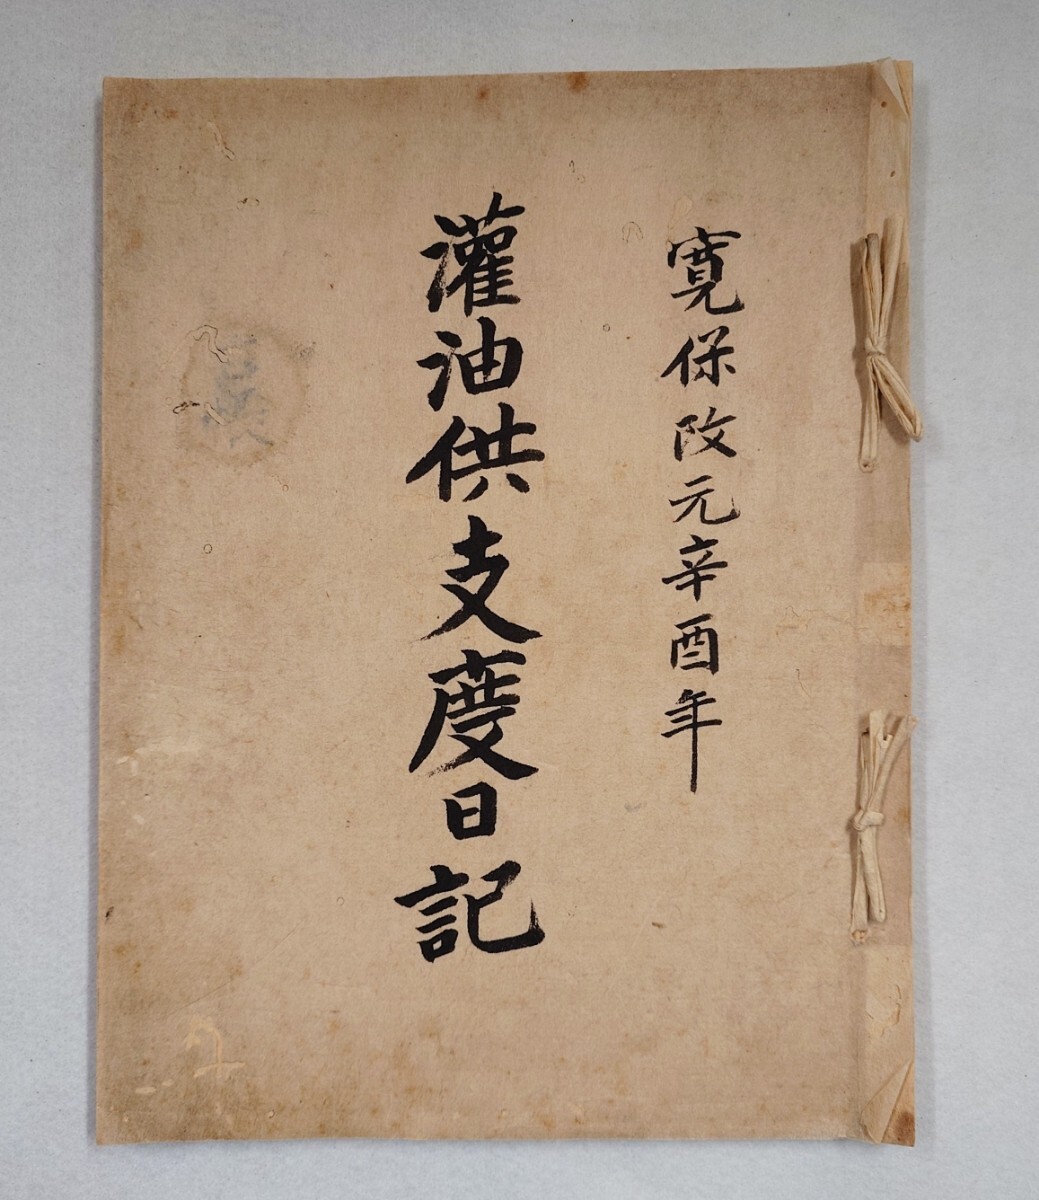 寛保改元辛酉年
灌油供支度日記